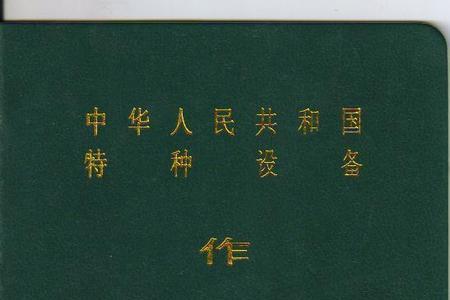 中华人民共和国
特种设备
作